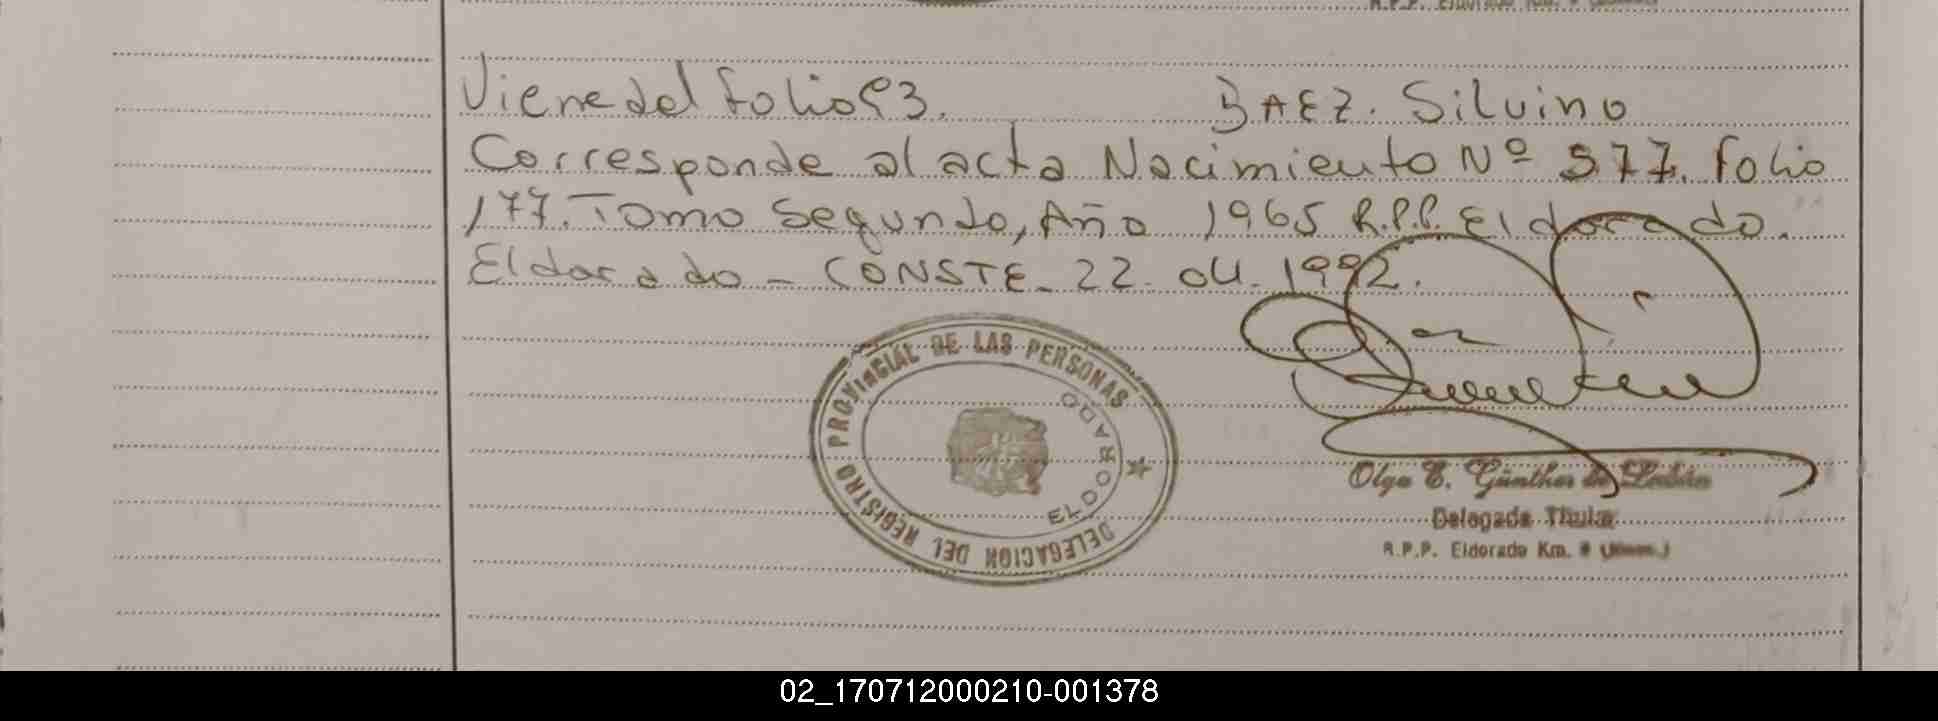 Viene del folio 93. BAEZ. Silvino
Corresponde al acta Nacimiento Nº 577. folio
177. Tomo Segundo, Año 1965 R.P.P. Eldorado.
Eldorado - CONSTE - 22. 04. 1992.
DELEGACION DEL REGISTRO PROVINCIAL DE LAS PERSONAS
ELDORADO
Olga E. Günther de
Delegada Titular
R.P.P. Eldorado Km. 9 (Mnes.)
02_170712000210-001378